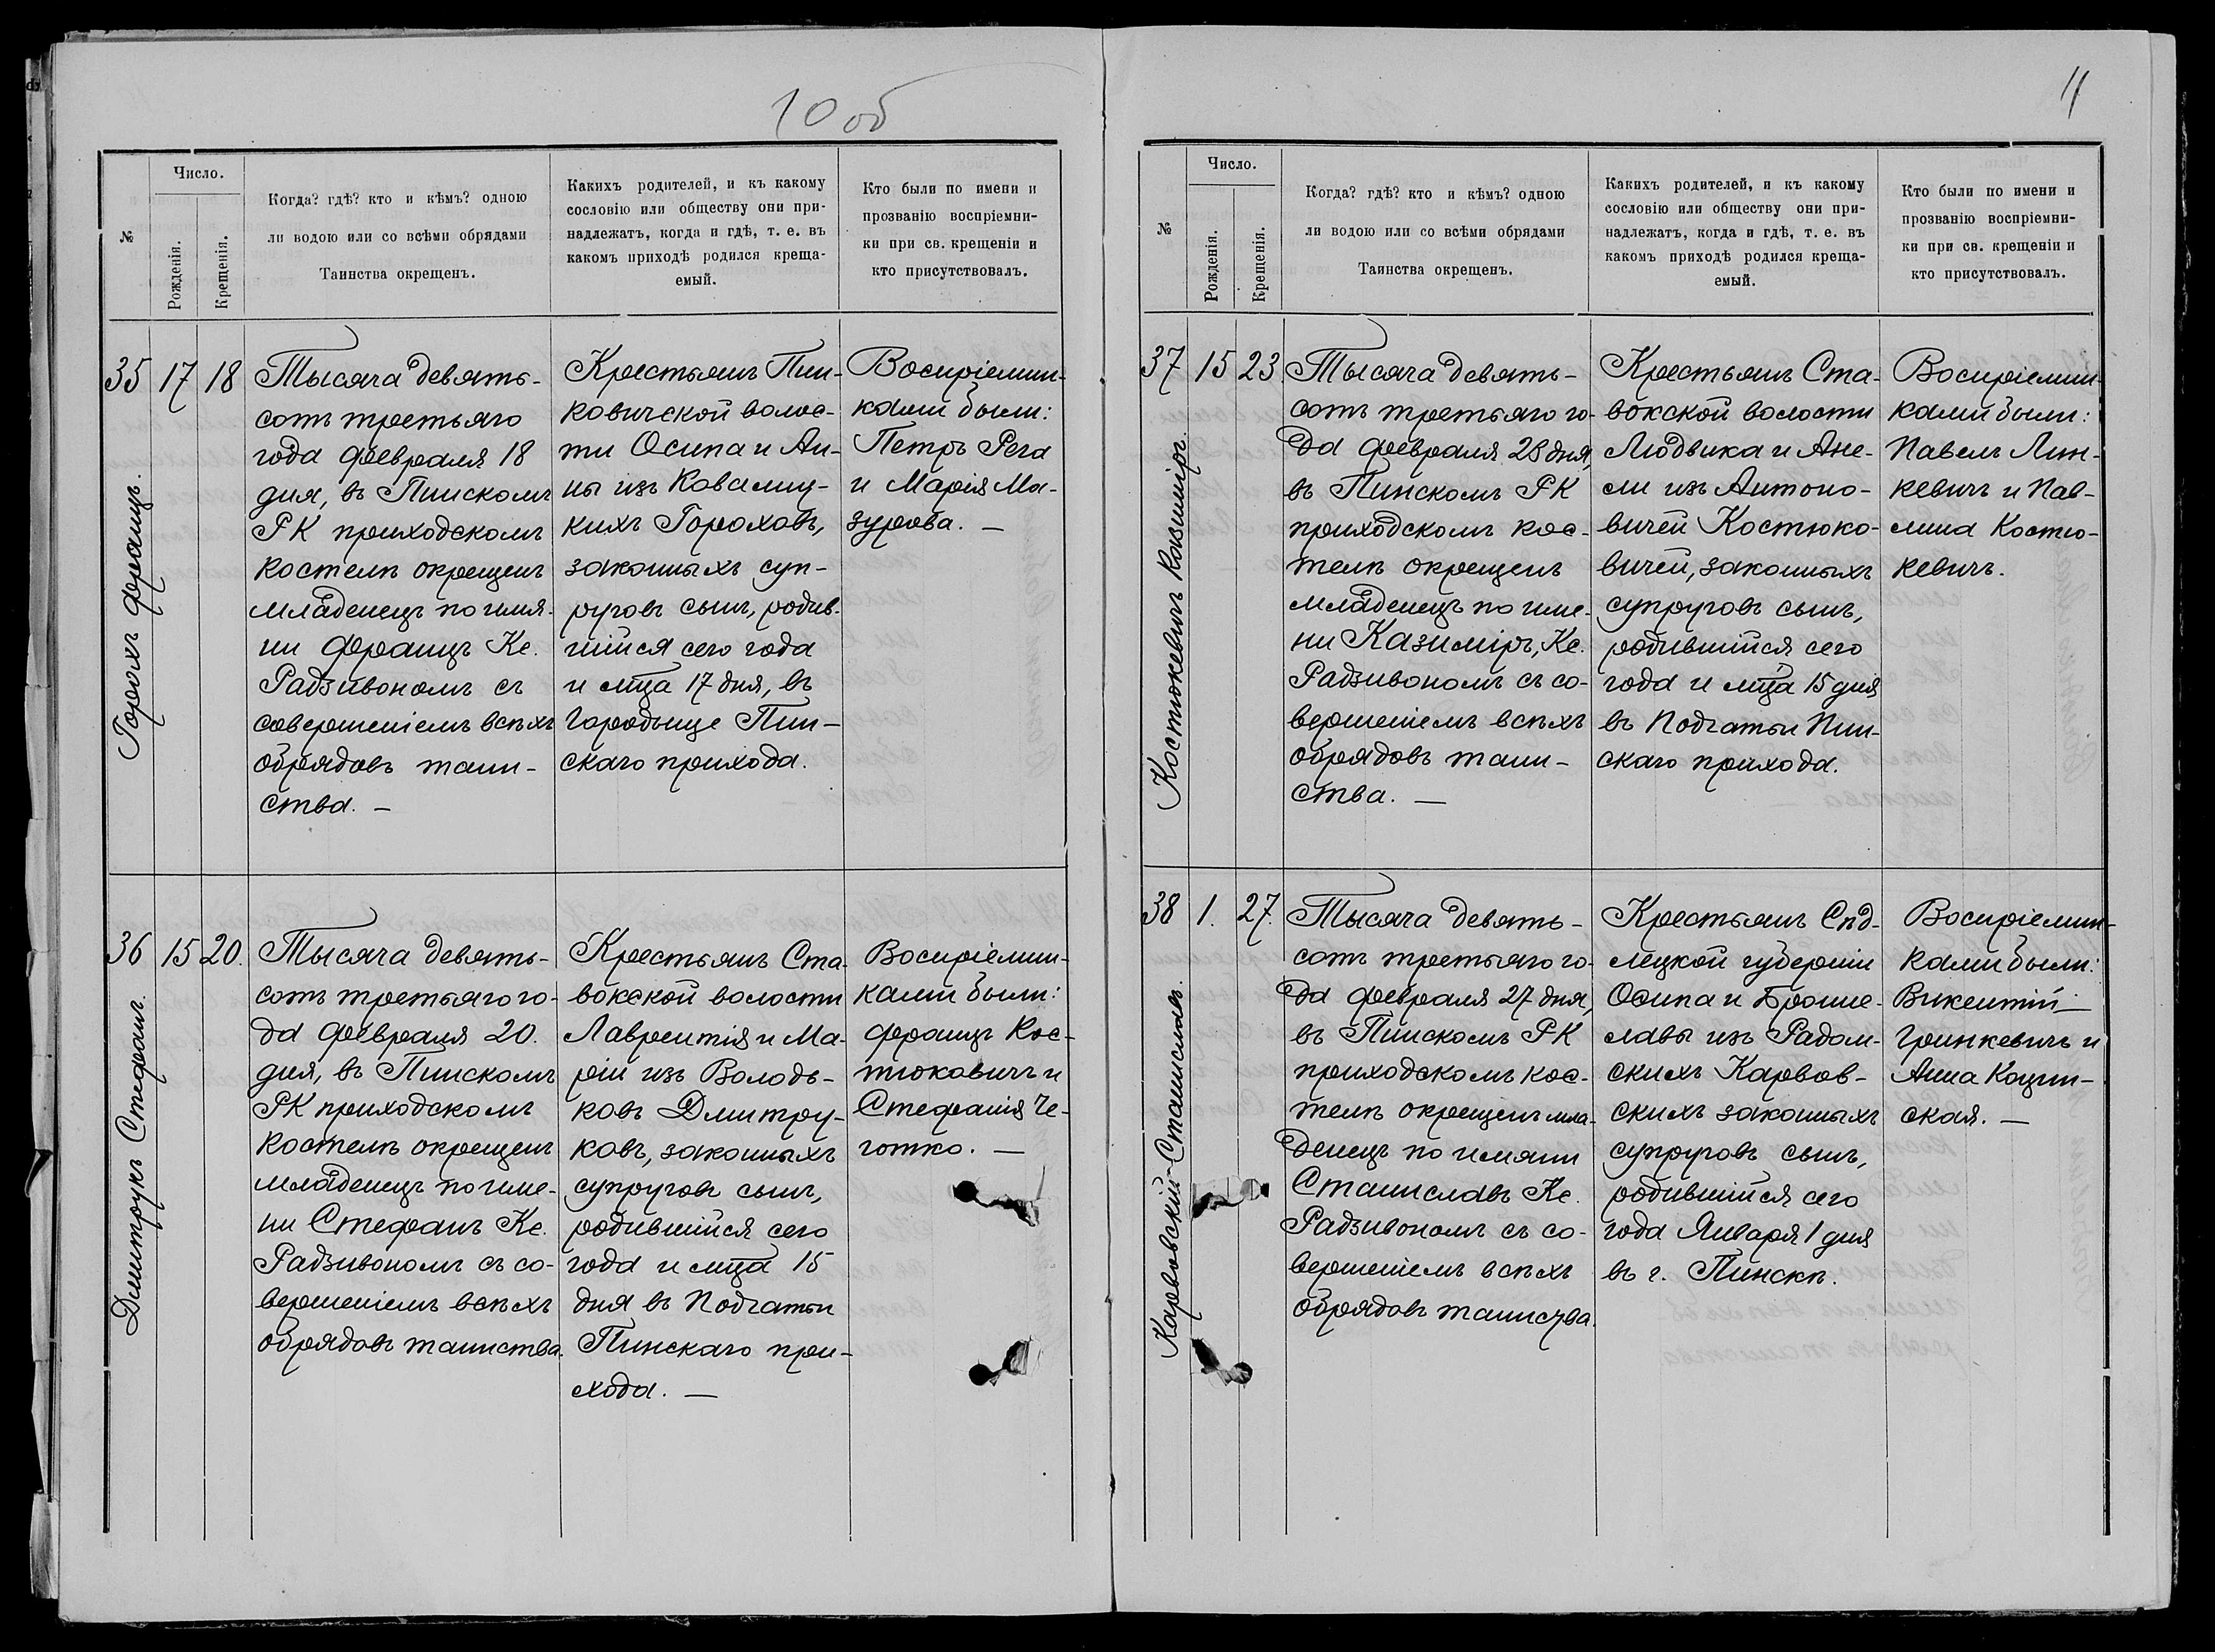 10 об
№
Число.
Рожденія.
Крещенія.
Когда? гдѣ? кто и кѣмъ? одною
ли водою или со всѣми обрядами
Таинства окрещенъ.
Какихъ родителей, и къ какому
сословію или обществу они при-
надлежатъ, когда и гдѣ, т. е. въ
какомъ приходѣ родился креща-
емый.
Кто были по имени и
прозванію воспріемни-
ки при св. крещеніи и
кто присутствовалъ.
35
17
18
Горохъ Францъ.
Тысяча девять-
сотъ третьяго
года февраля 18
дня, въ Пинскомъ
РК приходскомъ
костелѣ окрещенъ
младенецъ по имя-
ни Францъ Кс.
Радзивономъ съ
совершеніемъ всѣхъ
обрядовъ таин-
ства. —
Крестьянъ Пин-
ковичской волос-
ти Осипа и Ан-
ны изъ Ковалиц-
кихъ Гороховъ,
законныхъ суп-
руговъ сынъ, родив-
шийся сего года
и мца 17 дня, въ
Городыще Пин-
скаго прихода.
Воспріемни-
ками были:
Петръ Рега
и Марія Ма-
зурова. —
36
15
20.
Дмитрукъ Стефанъ.
Тысяча девять-
сотъ третьяго го-
да февраля 20.
дня, въ Пинскомъ
РК приходскомъ
костелѣ окрещенъ
младенецъ по име-
ни Стефанъ Кс.
Радзивономъ съ со-
вершеніемъ всѣхъ
обрядовъ таинства.
Крестьянъ Ста-
вокской волости
Лаврентія и Ма-
ріи изъ Володь-
ковъ Дмитру-
ковъ, законныхъ
супруговъ сынъ,
родившийся сего
года и мца 15
дня въ Подгатьи
Пинскаго при-
хода. —
Воспріемни-
ками были:
Францъ Кос-
тюковичъ и
Стефанія Че-
готко. —
11
№
Число.
Рожденія.
Крещенія.
Когда? гдѣ? кто и кѣмъ? одною
ли водою или со всѣми обрядами
Таинства окрещенъ.
Какихъ родителей, и къ какому
сословію или обществу они при-
надлежатъ, когда и гдѣ, т. е. въ
какомъ приходѣ родился креща-
емый.
Кто были по имени и
прозванію воспріемни-
ки при св. крещеніи и
кто присутствовалъ.
37
15
23.
Костюкевичъ Казиміръ.
Тысяча девять-
сотъ третьяго го-
да февраля 23 дня,
въ Пинскомъ РК
приходскомъ кос-
телѣ окрещенъ
младенецъ по име-
ни Казиміръ, Кс.
Радзивономъ съ со-
вершеніемъ всѣхъ
обрядовъ таин-
ства. —
Крестьянъ Ста-
вокской волости
Людвика и Ане-
ли изъ Антоно-
вичей Костюко-
вичей, законныхъ
супруговъ сынъ,
родившийся сего
года и мца 15 дня
въ Подгатьи Пин-
скаго прихода.
Воспріемни-
ками были:
Павелъ Лин-
кевичъ и Пав-
лина Костю-
кевичъ.
38
1.
27.
Карвовскій Станиславъ.
Тысяча девять-
сотъ третьяго го-
да февраля 27 дня,
въ Пинскомъ РК
приходскомъ кос-
телѣ окрещенъ мла-
денецъ по имяни
Станиславъ Кс.
Радзивономъ съ со-
вершеніемъ всѣхъ
обрядовъ таинства.
Крестьянъ Сѣд-
лецкой губерніи
Осипа и Броне-
лавы изъ Радом-
скихъ Карвов-
скихъ законныхъ
супруговъ сынъ,
родившийся сего
года Января 1 дня
въ г. Пинскѣ.
Воспріемни-
ками были:
Викентій
Гринкевичъ и
Анна Коцин-
ская. —